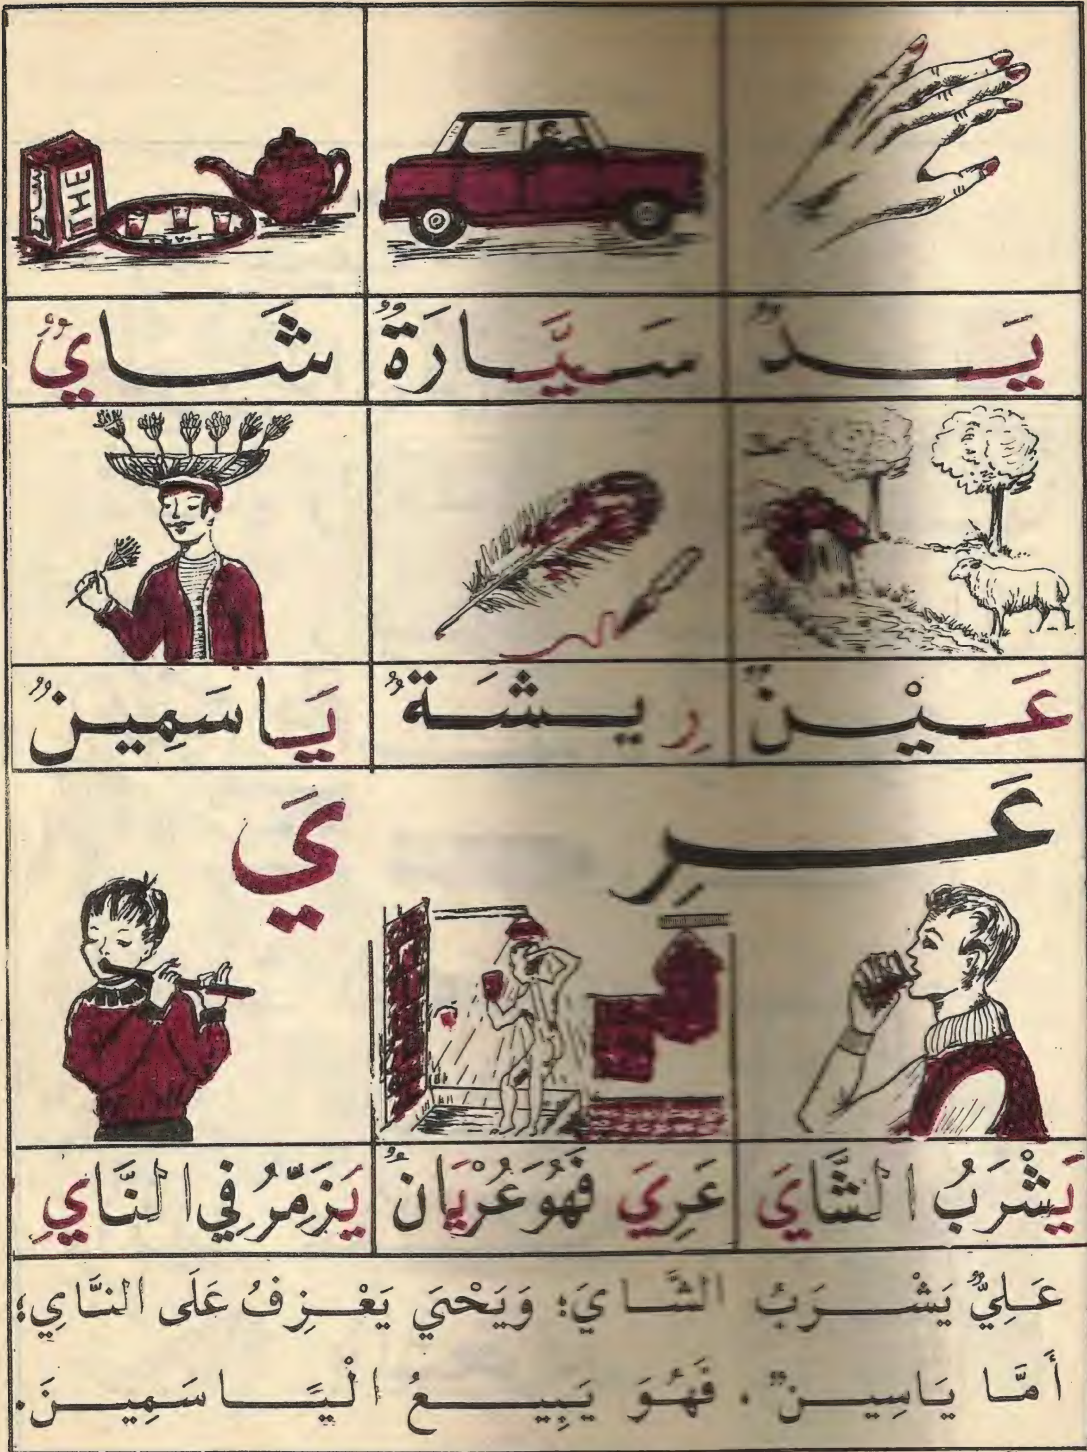 شاي
THE
يَدٌ سَيَّارَةٌ شَايٌ
عَيْنٌ رِيشَةٌ يَاسَمِينٌ
عَرِيَ
يَشْرَبُ الشَّايَ عَرِيَ فَهُوَ عُرْيَانٌ يُزَمِّرُ فِي النَّايِ
عَلِيٌّ يَشْرَبُ الشَّايَ؛ وَيَحْيَى يَعْزِفُ عَلَى النَّايِ؛
أَمَّا يَاسِينٌ. فَهُوَ يَبِيعُ الْيَاسَمِينَ.